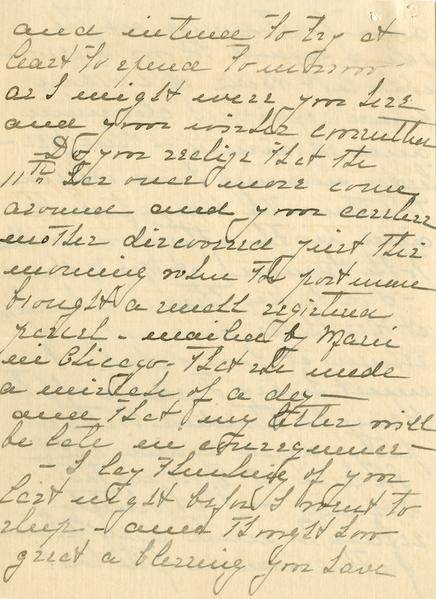 and intend to try at
least to spend tomorrow
as I might were you here
and your wishes consulted
Do you realize that the
11th has once more come
around and your careless
mother discovered just this
morning when the postman
brought a small registered
parcel - mailed by Marie
in Chicago - that she made
a mistake of a day —
and that my letter will
be late in consequence —
- I lay thinking of you
last night before I went to
sleep - and thought how
great a blessing you have